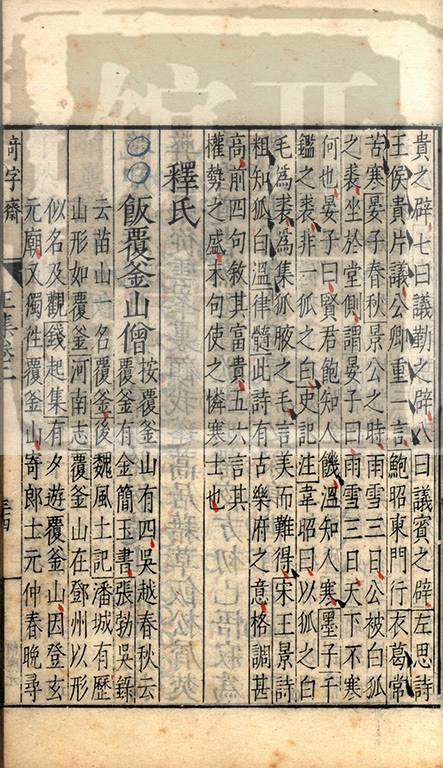 貴之辟七曰議勤之辟八曰議賓之辟左思詩
王侯貴片議公卿重一言鮑昭東門行衣葛常
苦寒晏子春秋景公之時雨雪三日公被白狐
之裘坐於堂側謂晏子曰雨雪三日天下不寒
何也晏子曰賢君飽知人饑溫知人寒墨子千
鎰之裘非一狐之白史記注韋昭曰以狐之白
毛為裘為集狐腋之毛言美而難得宋王景詩
粗知狐白溫律髓此詩有古樂府之意格調甚
高前四句敘其富貴五六言其
權勢之盛末句使之憐寒士也
釋氏
飯覆釜山僧
按覆釜山有四吳越春秋云
覆釜有金簡玉書張勃吳錄
云苗山一名覆釜後魏風土記潘城有歷
山形如覆釜河南志覆釜山在鄧州以形
似名及觀錢起集有夕遊覆釜山因登玄
元廟又獨往覆釜山寄郎士元仲春晚尋
奇字齋